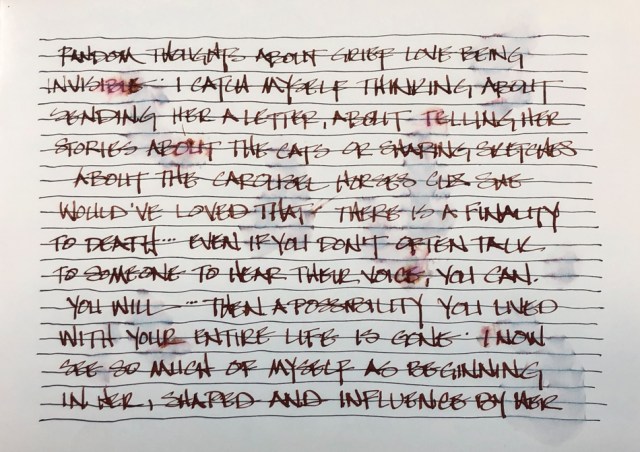 RANDOM THOUGHTS ABOUT GRIEF LOVE BEING
INVISIBLE... I CATCH MYSELF THINKING ABOUT
SENDING HER A LETTER, ABOUT TELLING HER
STORIES ABOUT THE CATS OR SHARING SKETCHES
ABOUT THE CAROUSEL HORSES CUZ SHE
WOULD'VE LOVED THAT. THERE IS A FINALITY
TO DEATH... EVEN IF YOU DON'T OFTEN TALK
TO SOMEONE TO HEAR THEIR VOICE, YOU CAN.
YOU WILL ... THEN A POSSIBILITY YOU LIVED
WITH YOUR ENTIRE LIFE IS GONE. I NOW
SEE SO MUCH OF MYSELF AS BEGINNING
IN HER, SHAPED AND INFLUENCE BY HER